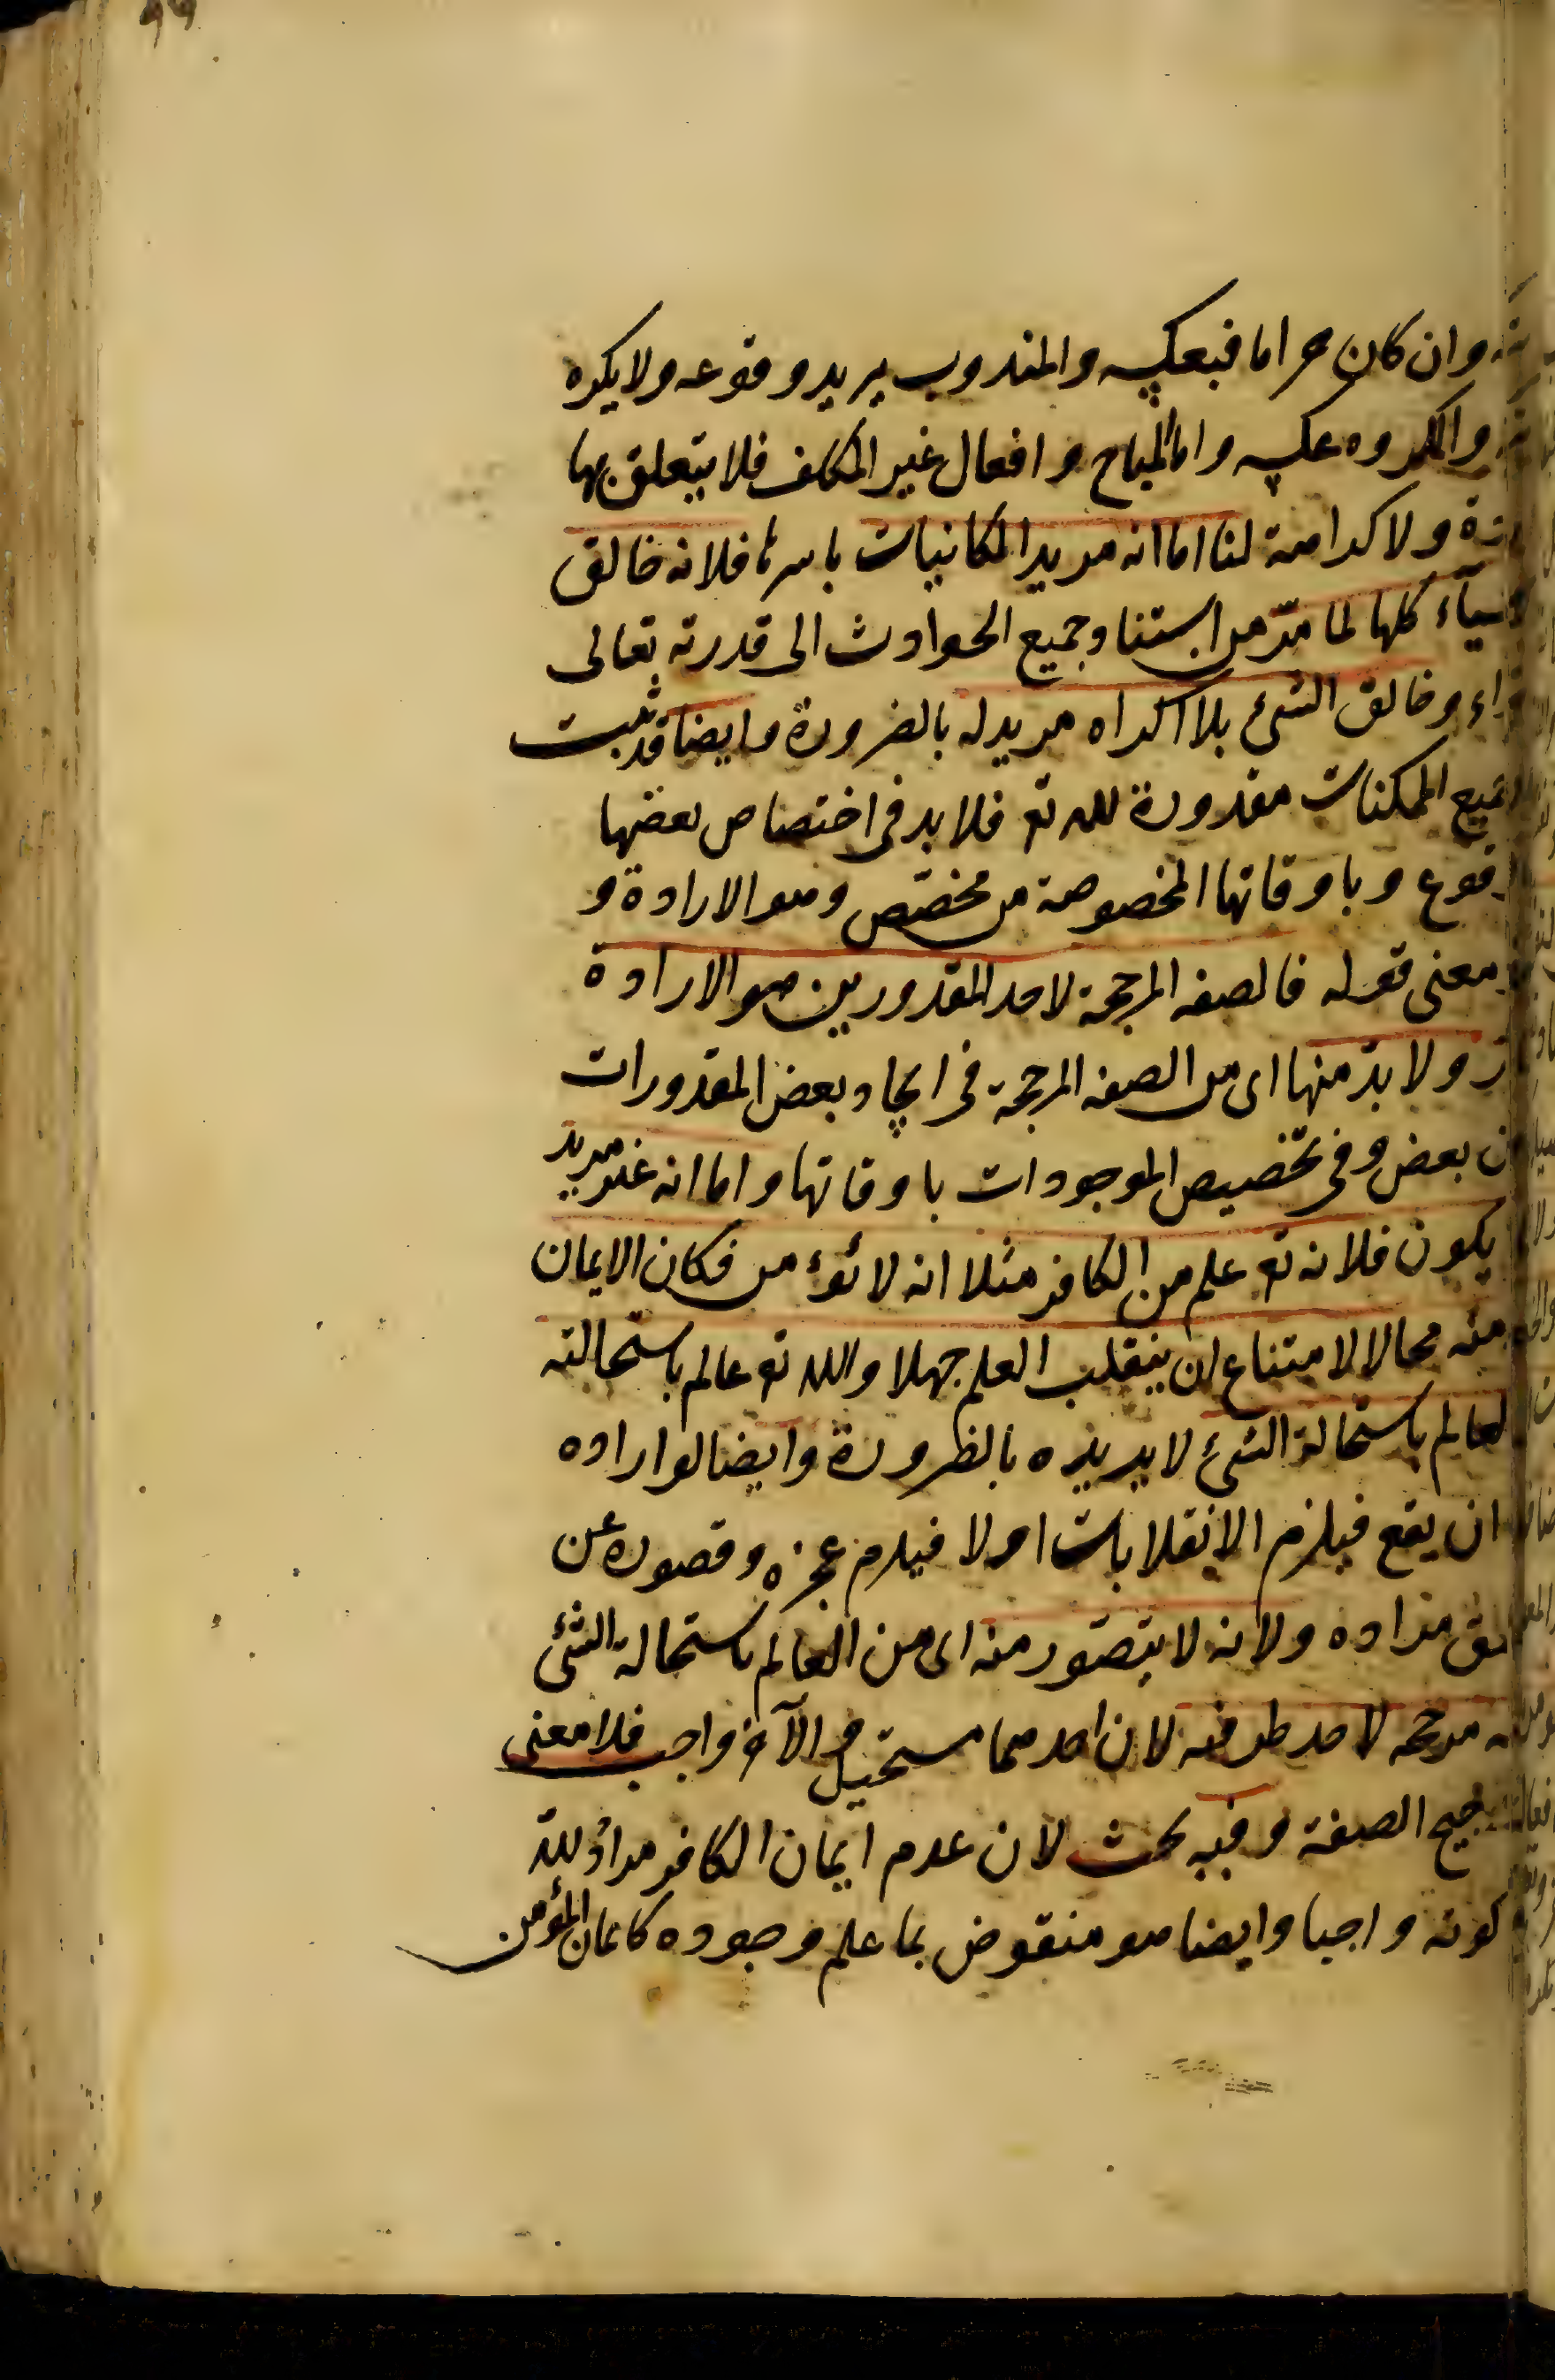 وان كان حراما فبعكسه والمندوب يريد وقوعه ولا يكره
والمكروه عكسه واما المباح وافعال غير المكلف فلا يتعلق بها
ولا كراهة لنا اما انه مريد الكائنات باسرها فلانه خالق
الاشياء كلها لما مرّ من استناد جميع الحوادث الى قدرته تعالى
وخالق الشئ بلا اكراه مريد له بالضرورة وايضا قد ثبت
جميع الممكنات مقدورة لله تع فلا بد فى اختصاص بعضها
وقوع وباوقاتها المخصوصة من مخصّص وهو الارادة و
معنى قوله فالصفه المرجحة لاحد المقدورين هو الارادة
ولا بدّ منها اى من الصفه المرجحة فى ايجاد بعض المقدورات
بعض وفى تخصيص الموجودات باوقاتها واما انه غير مريد
يكون فلانه تع علم من الكافر مثلا انه لا يؤمن فكان الايمان
منه محالا لامتناع ان ينقلب العلم جهلا والله تع عالم باستحالته
العالم باستحالة الشئ لا يريده بالضرورة وايضا لو اراده
ان يقع فيلزم الانقلاب او لا فيلزم عجزه وقصوره عن
مراده ولانه لا يتصور منه اى من العالم باستحالة الشئ
مرجحه لاحد طرفيه لان احدهما مستحيل والآخر واجب فلا معنى
الصفة وفيه بحث لان عدم ايمان الكافر مرادٌ لله
كونه واجبا وايضا هو منقوض بما علم وجوده كايمان المؤمن